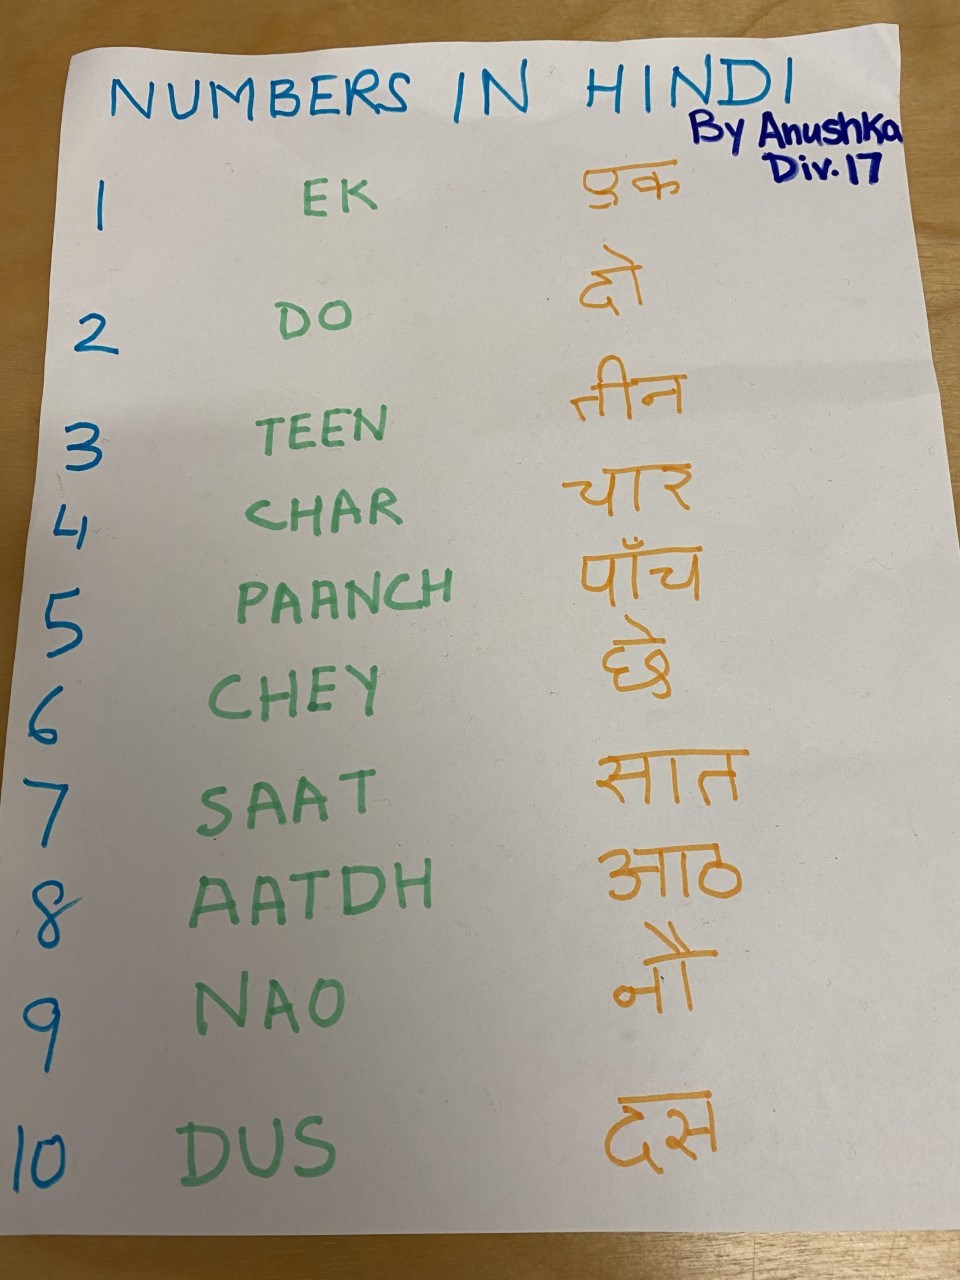 NUMBERS IN HINDI
By Anushka
Div. 17
1 EK एक
2 DO दो
3 TEEN तीन
4 CHAR चार
5 PAANCH पाँच
6 CHEY छे
7 SAAT सात
8 AATDH आठ
9 NAO नौ
10 DUS दस